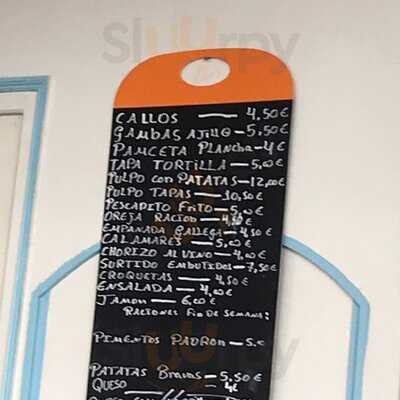 Slurpy
CALLOS — 4,50€
GAMBAS AJILLO — 5,50€
PANCETA PLANCHA — 4€
TAPA TORTILLA — 5,00€
PULPO con PATATAS — 12,00€
PULPO TAPAS — 10,50€
PESCADITO FRITO — 5,00€
OREJA RACION — 4,50€
EMPANADA GALLEGA — 4,50€
CALAMARES — 5,00€
CHORIZO AL VINO — 4,00€
SORTIDO EMBUTIDOS — 7,50€
CROQUETAS — 4,50€
ENSALADA — 4,00€
JAMON — 6,00€
RACIONES FIN DE SEMANA:
PIMENTOS PADRON — 5.€
PATATAS Bravas — 5,50€
QUESO — 4€